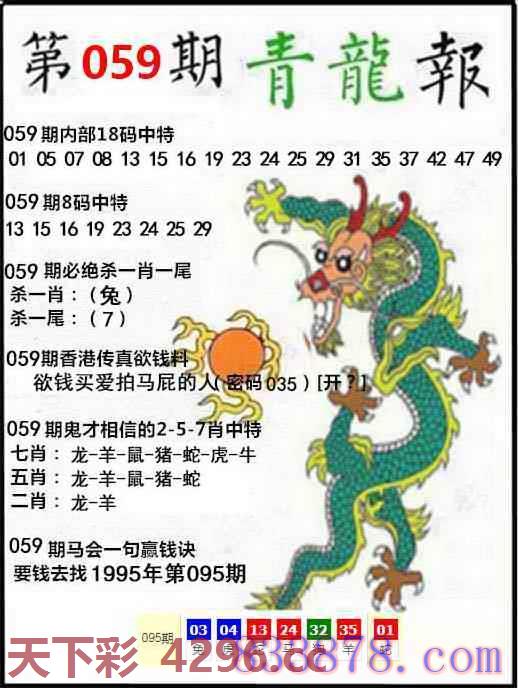 第059期 青龍報
059期内部18码中特
01 05 07 08 13 15 16 19 23 24 25 29 31 35 37 42 47 49
059期8码中特
13 15 16 19 23 24 25 29
059期必绝杀一肖一尾
杀一肖：（兔）
杀一尾：（7）
059期香港传真欲钱料
欲钱买爱拍马屁的人(密码035）[开？]
059期鬼才相信的2-5-7肖中特
七肖：龙-羊-鼠-猪-蛇-虎-牛
五肖：龙-羊-鼠-猪-蛇
二肖：龙-羊
059期马会一句赢钱诀
要钱去找1995年第095期
095期 03 04 13 24 32 35 01
兔 虎 马 羊 蛇
天下彩 4296.cc
838878.com